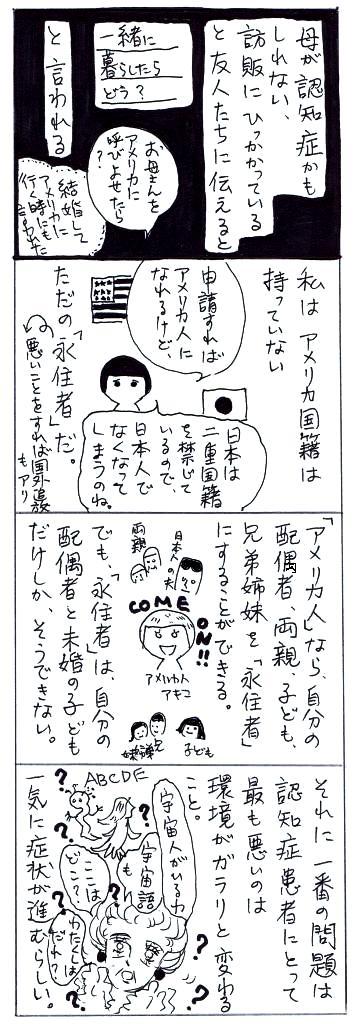 母が認知症かも
しれない、
訪販にひっかかっている
と友人たちに伝えると
一緒に
暮らしたら
どう？
お母さんを
アメリカに
呼びよせたら
？
と言われる
結婚して
アメリカに
行く時にも
言われた
私はアメリカ国籍は
持っていない
申請すれば
アメリカ人に
なれるけど、
日本は
二重国籍
を禁じて
いるので、
日本人で
なくなって
しまうのね。
ただの「永住者」だ。
悪いことをすれば国外追放
もアリ
「アメリカ人」なら、自分の
配偶者、両親、子ども、
兄弟姉妹を「永住者」
にすることができる。
日本人
の夫
両親
COME
ON!!
アメリカ人
アキコ
姉妹
兄弟
子ども
でも、「永住者」は、自分の
配偶者と未婚の子ども
だけしか、そうできない。
それに一番の問題は
認知症患者にとって
最も悪いのは
環境がガラリと変わる
こと。
宇宙人がいるわ
宇宙語
も
ABCDE
ここは
どこ？
わたしは
だれ？
一気に症状が進むらしい。